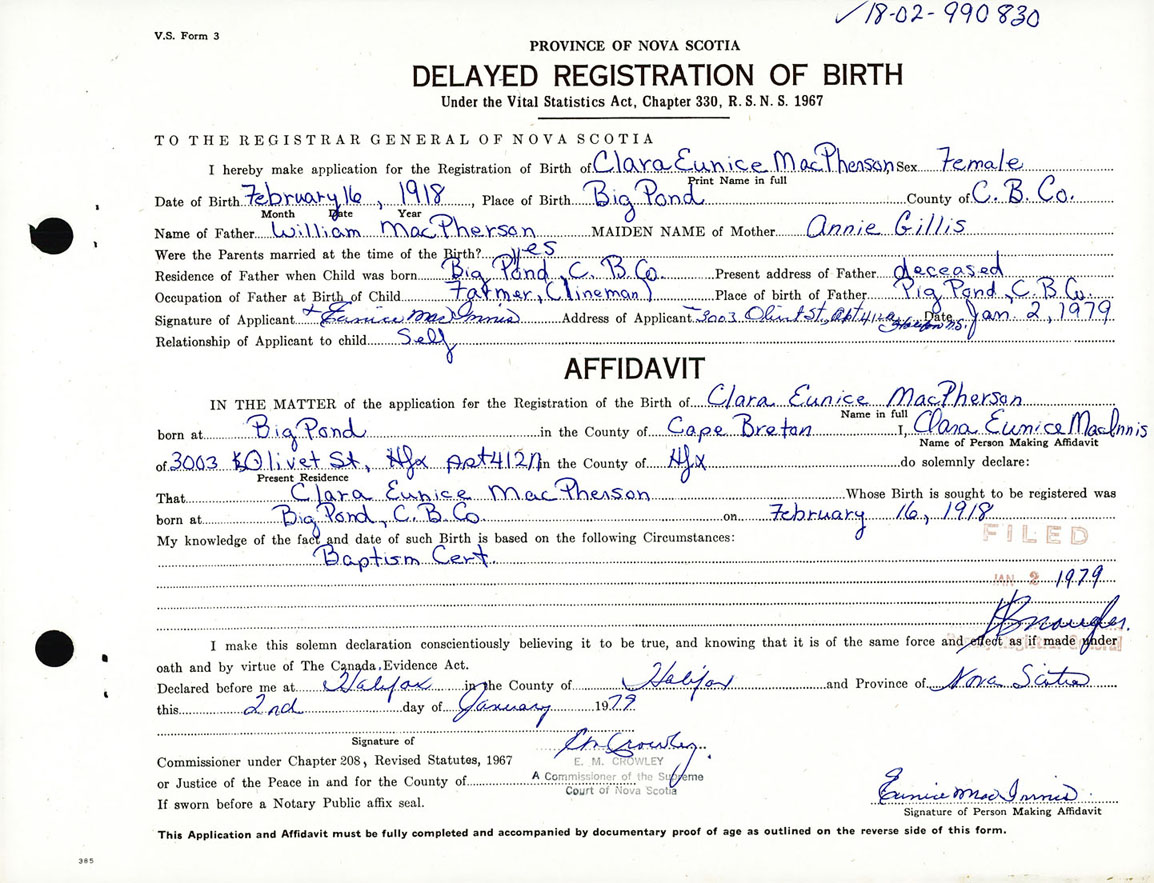 ✓18-02-990830
V.S. Form 3
PROVINCE OF NOVA SCOTIA
DELAYED REGISTRATION OF BIRTH
Under the Vital Statistics Act, Chapter 330, R.S.N.S. 1967
TO THE REGISTRAR GENERAL OF NOVA SCOTIA
I hereby make application for the Registration of Birth of Clara Eunice MacPherson, Sex Female
Print Name in full
Date of Birth February 16, 1918, Place of Birth Big Pond County of C. B. Co.
Month Date Year
Name of Father William MacPherson MAIDEN NAME of Mother Annie Gillis
Were the Parents married at the time of the Birth? yes
Residence of Father when Child was born Big Pond, C. B. Co. Present address of Father deceased
Occupation of Father at Birth of Child Farmer, (lineman) Place of birth of Father Big Pond, C. B. Co.
Signature of Applicant Eunice MacInnis Address of Applicant 3003 Olivet St, Apt 412 Halifax N.S. Date Jan. 2, 1979
Relationship of Applicant to child Self
AFFIDAVIT
IN THE MATTER of the application for the Registration of the Birth of Clara Eunice MacPherson
Name in full
born at Big Pond in the County of Cape Breton I, Clara Eunice MacInnis
Name of Person Making Affidavit
of 3003 Olivet St, Hfx Apt 412 in the County of Hfx do solemnly declare:
Present Residence
That Clara Eunice MacPherson Whose Birth is sought to be registered was
born at Big Pond, C. B. Co. on February 16, 1918
FILED
My knowledge of the fact and date of such Birth is based on the following Circumstances:
Baptism Cert.
JAN 2 1979
I make this solemn declaration conscientiously believing it to be true, and knowing that it is of the same force and effect as if made under
oath and by virtue of The Canada Evidence Act.
Declared before me at Halifax in the County of Halifax and Province of Nova Scotia
this 2nd day of January 1979
Signature of EM Crowley
Commissioner under Chapter 208, Revised Statutes, 1967 E. M. CROWLEY
or Justice of the Peace in and for the County of A Commissioner of the Supreme
Court of Nova Scotia
Eunice MacInnis
If sworn before a Notary Public affix seal.
Signature of Person Making Affidavit
This Application and Affidavit must be fully completed and accompanied by documentary proof of age as outlined on the reverse side of this form.
385